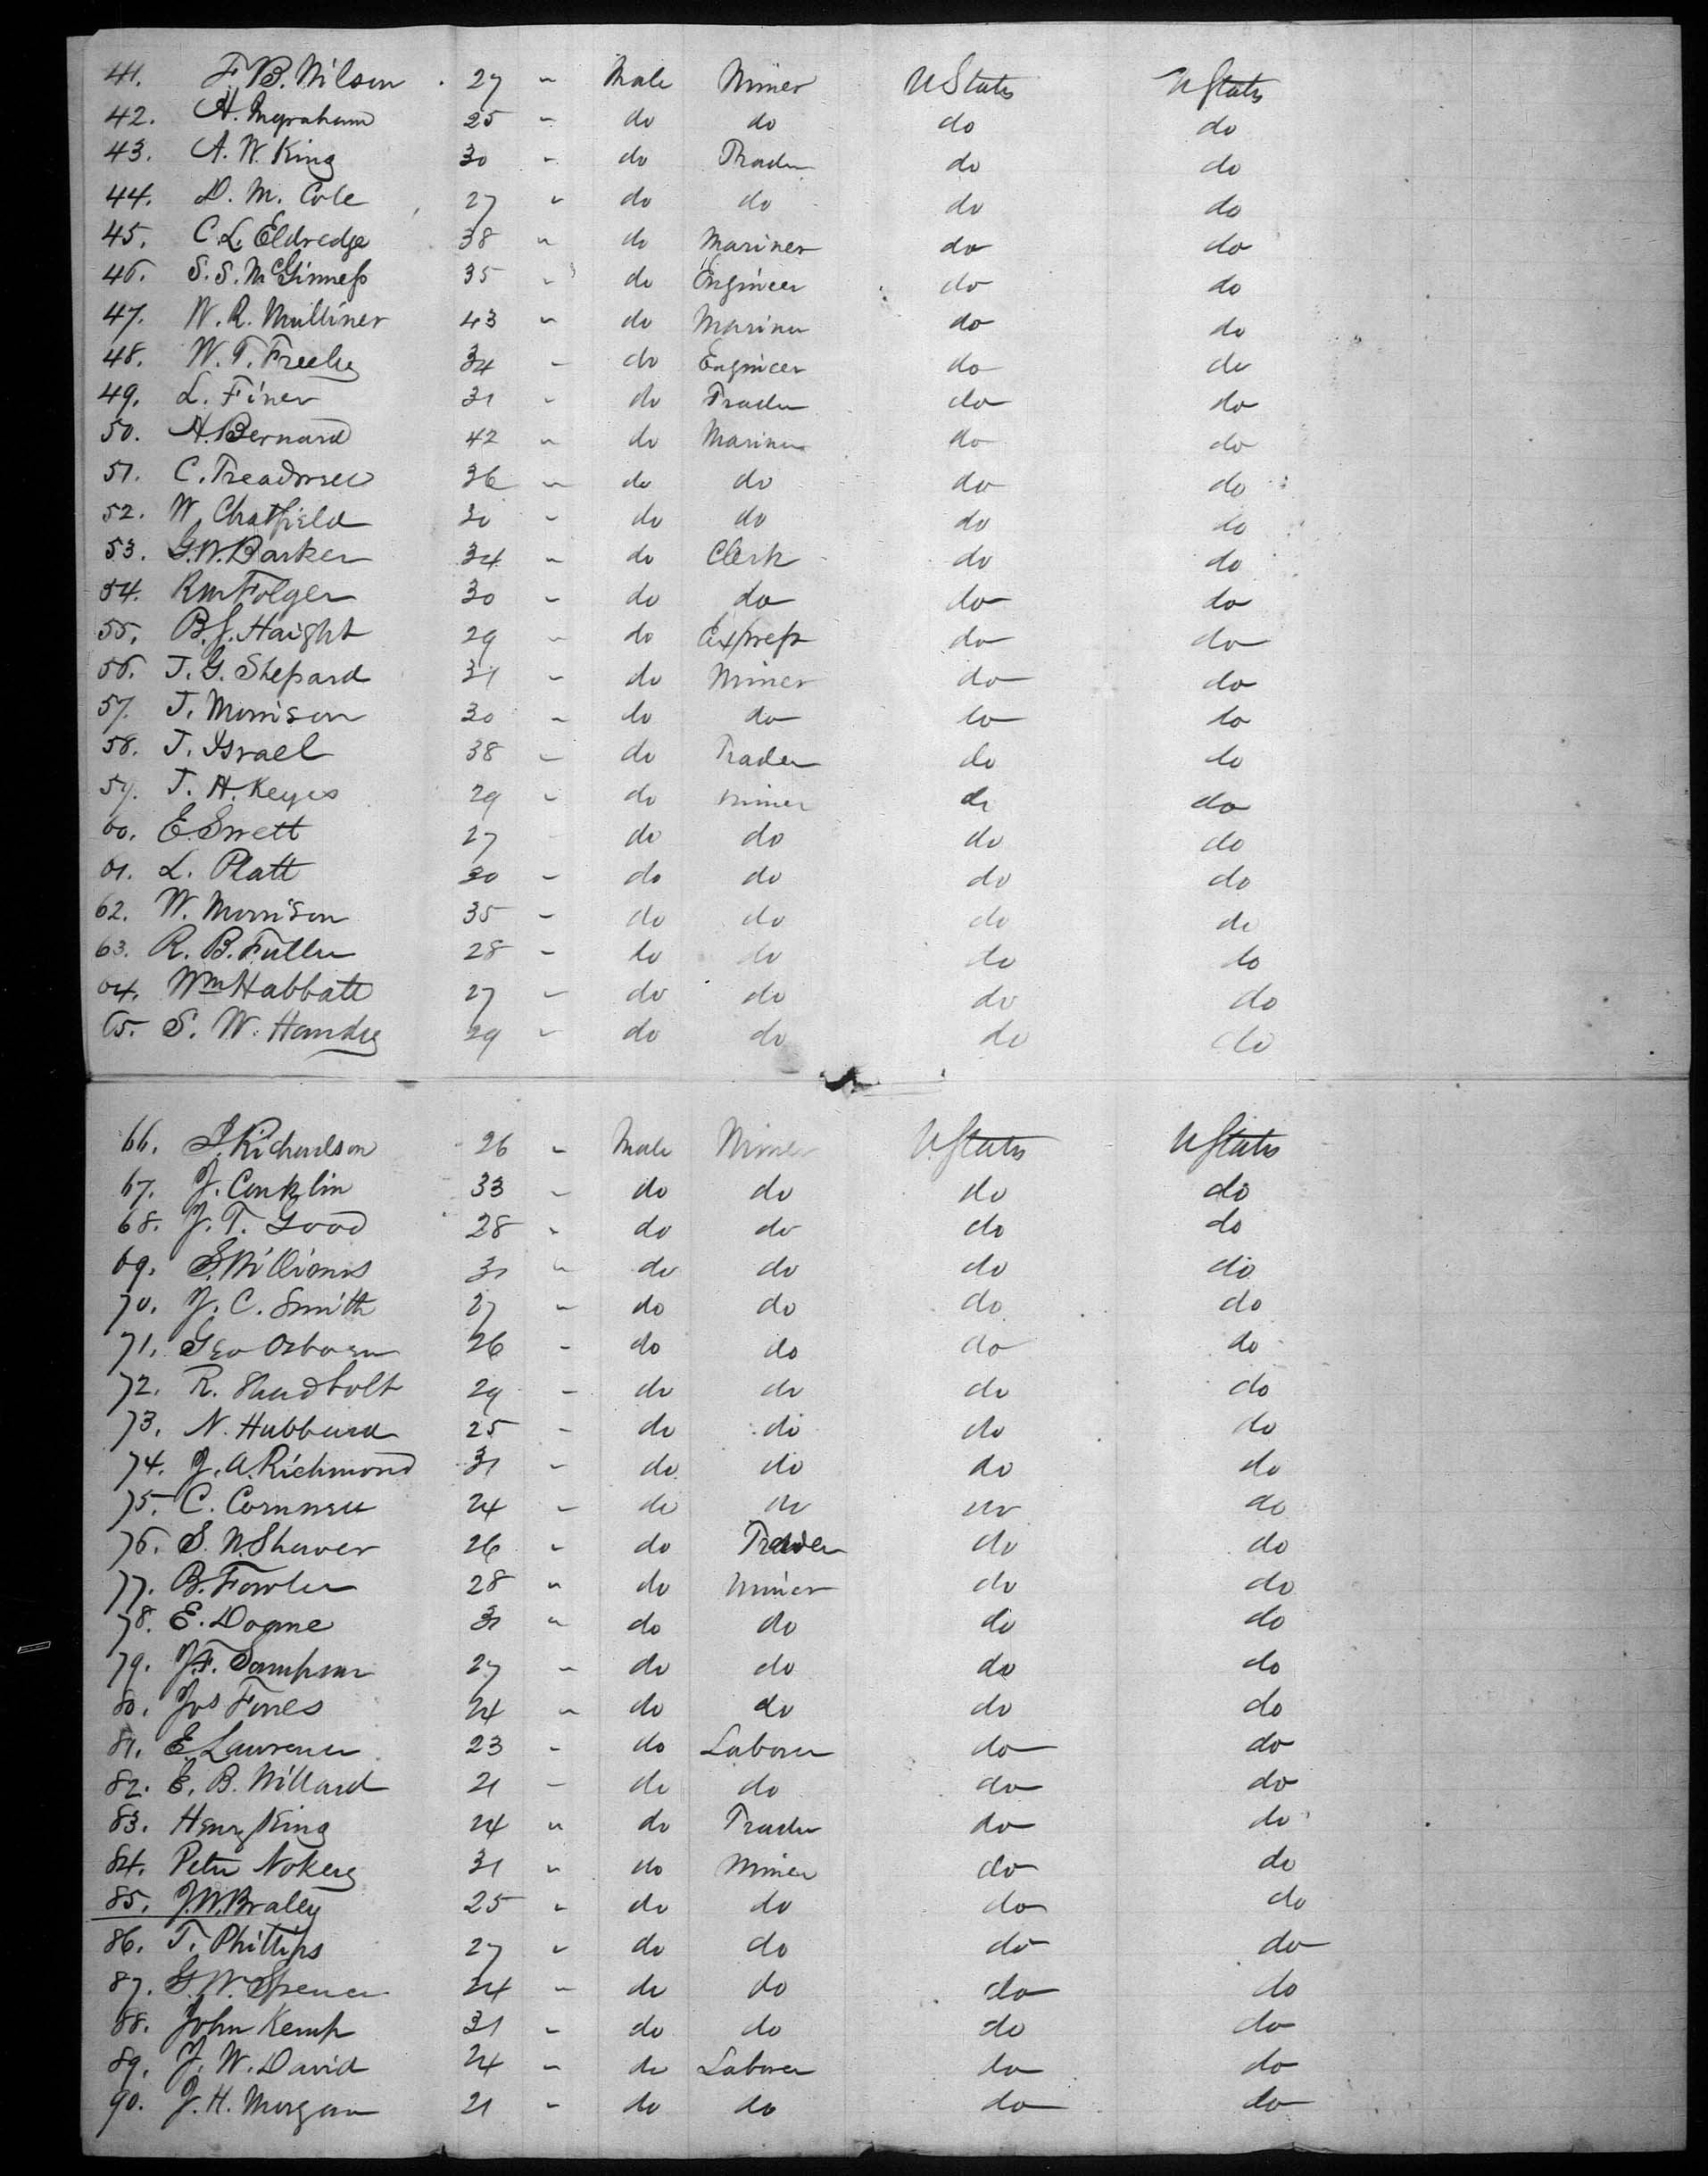 41. F. B. Wilson 27 " Male Miner UStates UStates
42. A. Ingraham 25 " do do do do
43. A. W. King 30 " do Trader do do
44. D. M. Cole 27 " do do do do
45. C. L. Eldredge 38 " do Mariner do do
46. S. S. McGinness 35 " do Engineer do do
47. W. R. Mulliner 43 " do Mariner do do
48. W. T. Freeley 34 " do Engineer do do
49. L. Finer 31 " do Trader do do
50. A. Bernard 42 " do Mariner do do
51. C. Treadwell 36 " do do do do
52. W Chatfield 30 " do do do do
53. G. W. Barker 34 " do Clerk do do
54. R M Folger 30 " do do do do
55. B. J. Haight 29 " do Express do do
56. J. G. Shepard 31 " do Miner do do
57. J. Morrison 30 " do do do do
58. J. Israel 38 " do Trader do do
59. J. A. Keyes 29 " do Miner do do
60. E. Swett 27 " do do do do
61. L. Platt 30 " do do do do
62. W. Morrison 35 " do do do do
63. R. B. Fuller 28 " do do do do
64. Wm Habbatt 27 " do do do do
65. S. W. Handy 29 " do do do do
66. J. Richardson 26 " Male Miner UStates UStates
67. J. Conklin 33 " do do do do
68. J. T. Good 28 " do do do do
69. S. Williams 31 " do do do do
70. J. C. Smith 27 " do do do do
71. Geo Osborn 26 " do do do do
72. R. Shadbolt 29 " do do do do
73. N. Hubbard 25 " do do do do
74. J. A. Richmond 31 " do do do do
75. C. Cornwell 24 " do do do do
76. S. W. Shaver 26 " do Trader do do
77. B. Fowler 28 " do Miner do do
78. E. Doane 31 " do do do do
79. J. F. Sampson 27 " do do do do
80. Jos Fones 24 " do do do do
81. E. Lawrence 23 " do Laborer do do
82. E. B. Willard 21 " do do do do
83. Henry King 24 " do Trader do do
84. Peter Nokey 31 " do Miner do do
85. J. W. Braley 25 " do do do do
86. T. Phillips 27 " do do do do
87. G. W. Spencer 24 " do do do do
88. John Kemp 31 " do do do do
89. J. W. David 24 " do Laborer do do
90. J. H. Morgan 21 " do do do do